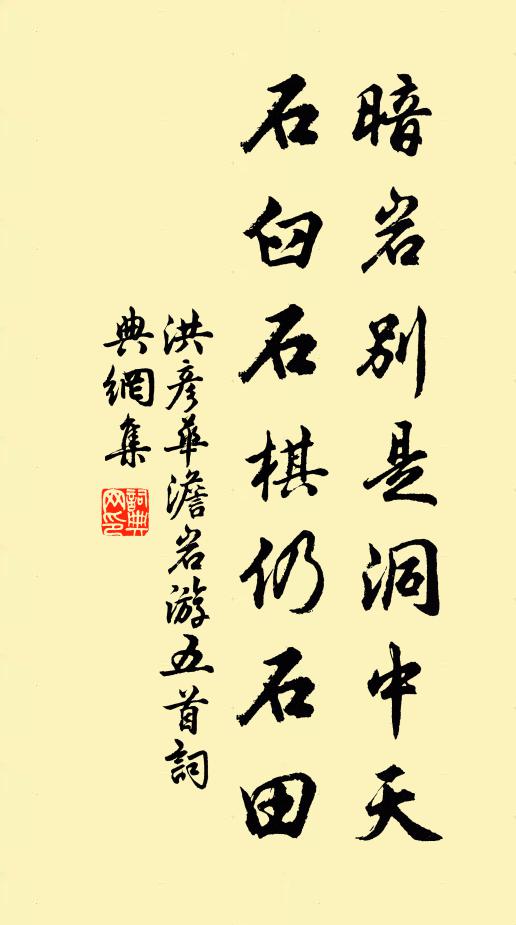 暗岩別是洞中天
石臼石棋仍石田
洪彥華澹岩游五首詞
典網集
詞典網印